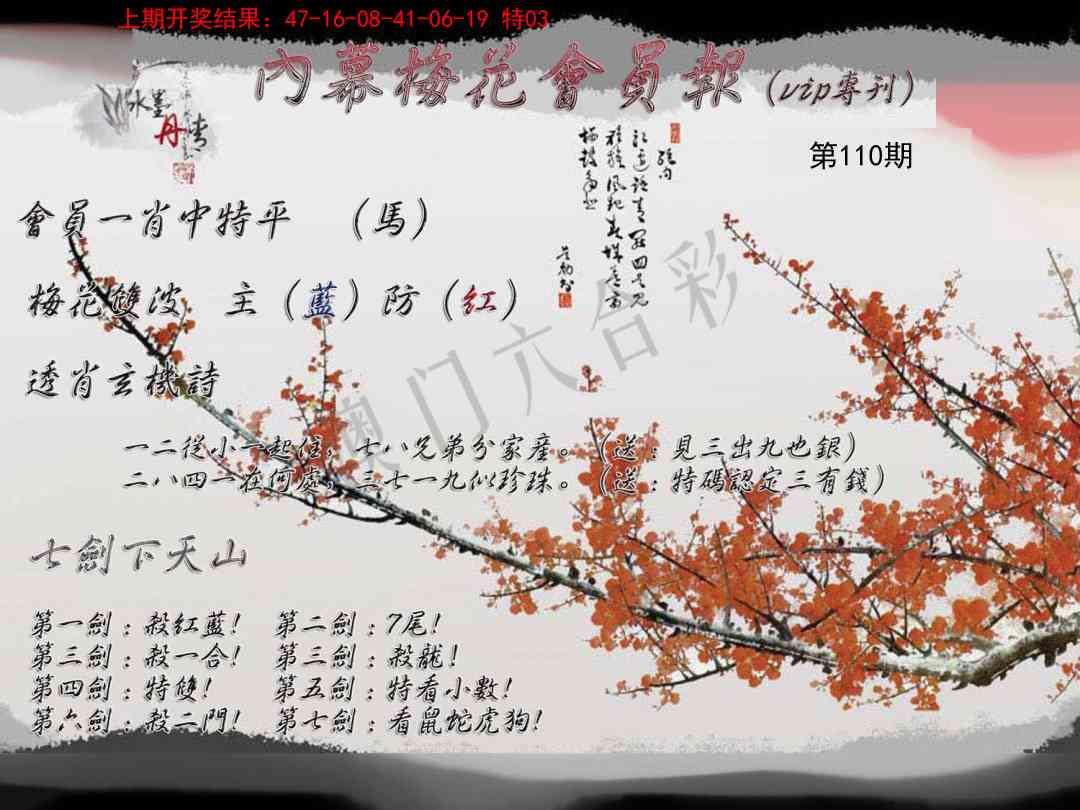 上期开奖结果：47-16-08-41-06-19 特03
內幕梅花會員報（vip專刊）
水墨
丹青
第110期
會員一肖中特平 （馬）
梅花雙波 主（藍）防（红）
澳门六合彩
透肖玄機詩
一二從小一起住，七八兄弟分家産。（送：見三出九也銀）
二八四一在何處，三七一九似珍珠。（送：特碼認定三有錢）
七劍下天山
第一劍：殺红藍！ 第二劍：7尾！
第三劍：殺一合！ 第三劍：殺龍！
第四劍：特雙！ 第五劍：特看小數！
第六劍：殺二門！ 第七劍：看鼠蛇虎狗！